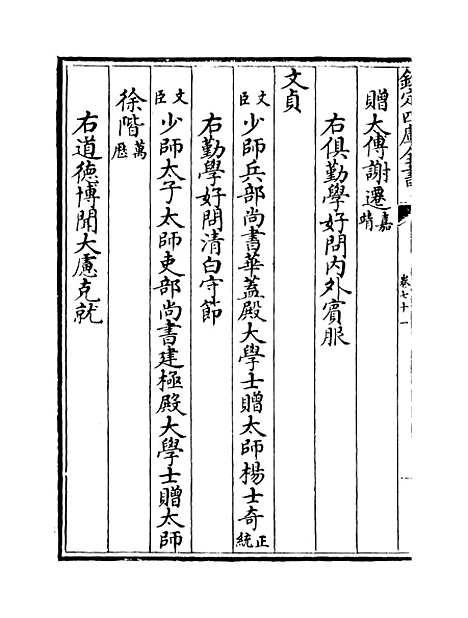 欽定四庫全書
卷七十一
贈太傅謝遷嘉靖
右俱勤學好問內外賓服
文貞
文臣少師兵部尚書華蓋殿大學士贈太師楊士奇正統
右勤學好問清白守節
文臣少師太子太師吏部尚書建極殿大學士贈太師
徐階萬厯
右道德博聞大慮克就